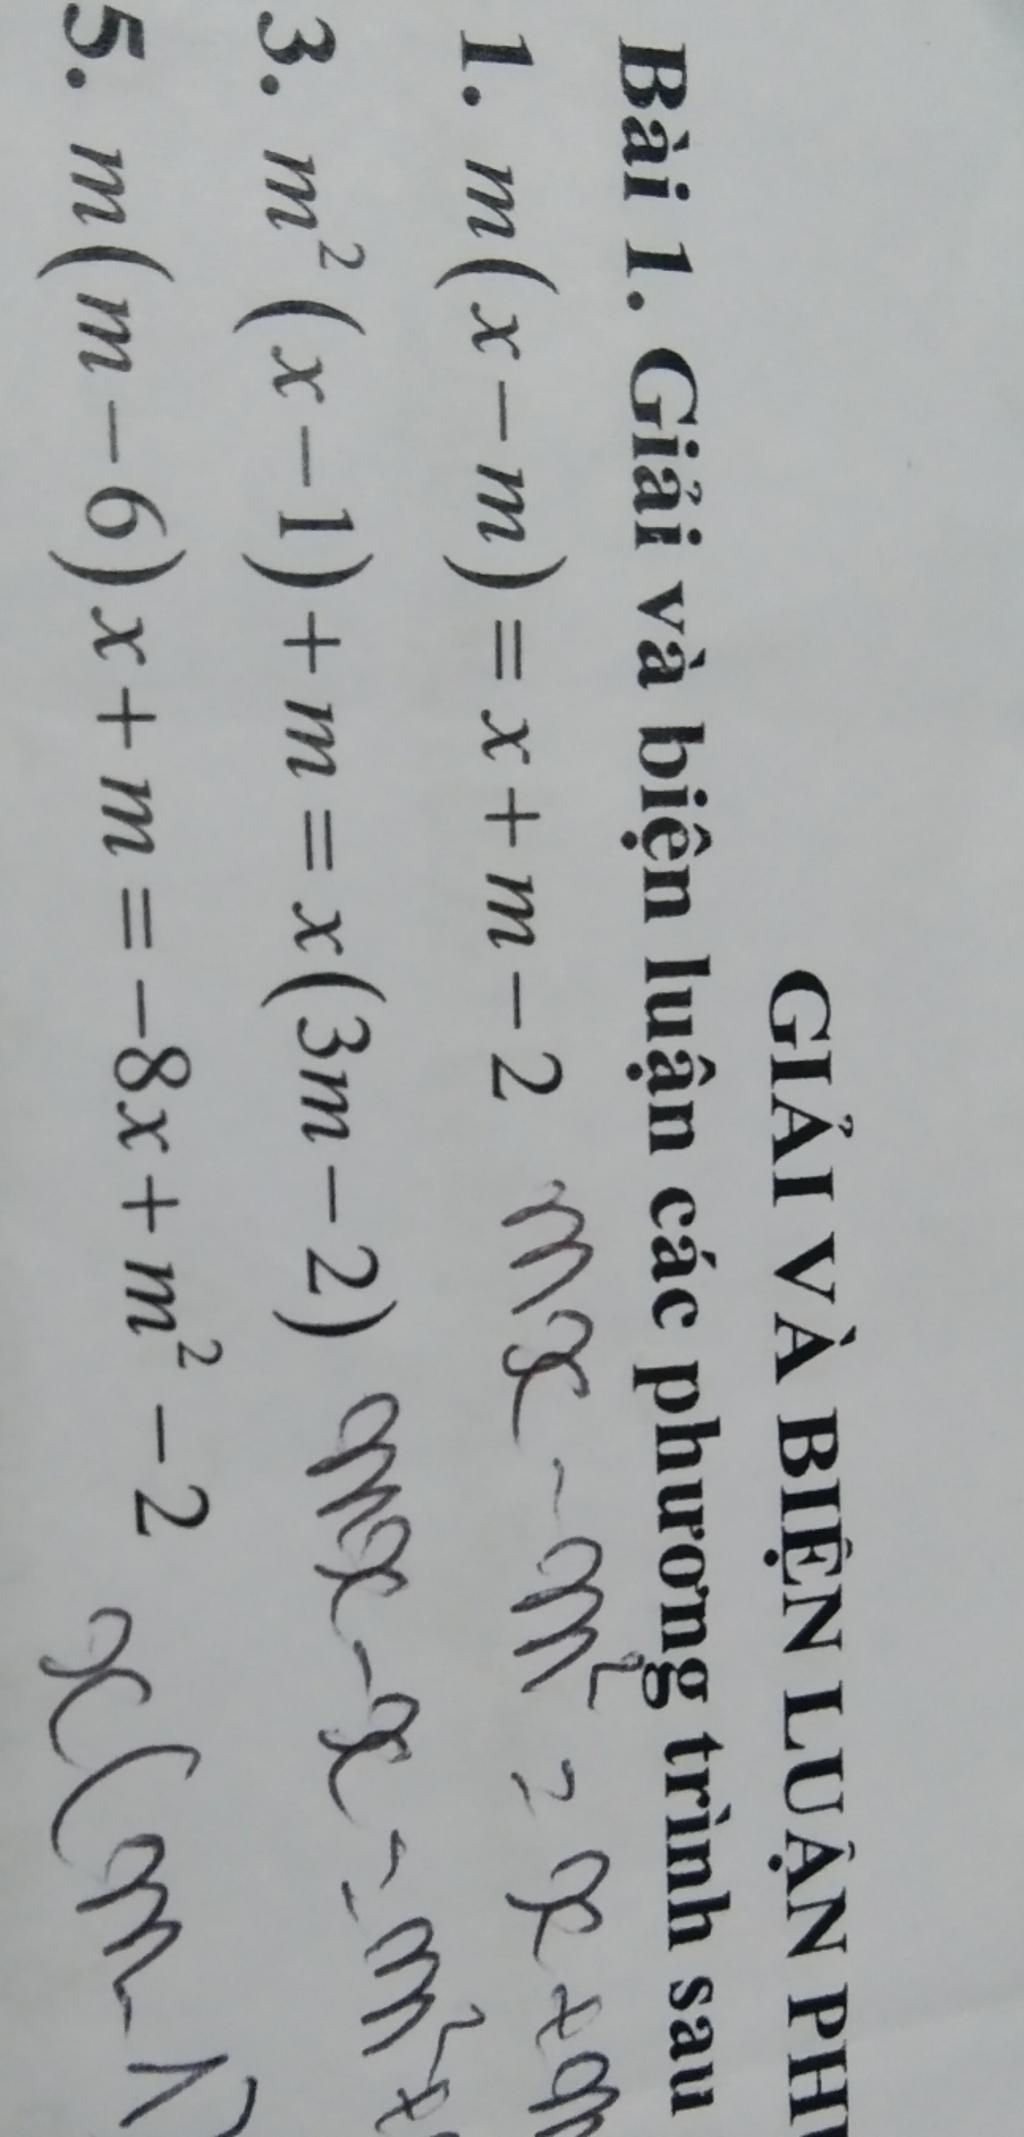 GIẢI VÀ BIỆN LUẬN
Bài 1. Giải và biện luận các phương trình sau
1. m(x − m) = x + m − 2 mx − m² = x + m
3. m²(x − 1) + m = x(3m − 2) mx − x = m² +
5. m(m − 6)x + m = −8x + m² − 2 x(m − 1)